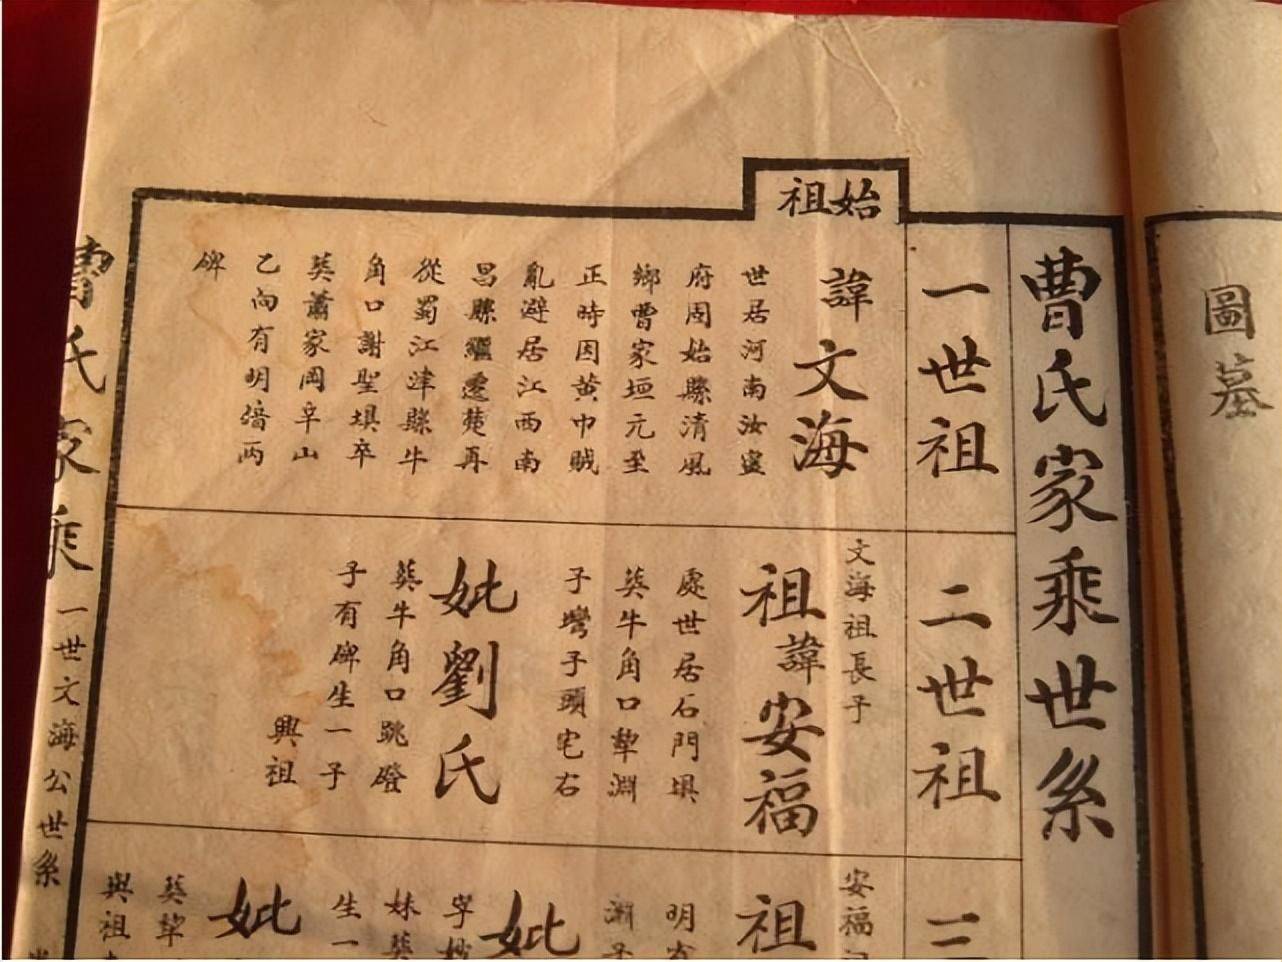 圖墓
曹氏家乘世系
始祖
一世祖
諱文海
世居河南汝寧
府固始縣清風
鄉曹家垣元至
正時因黃巾賊
亂避居江西南
昌縣繼遷楚再
從蜀江津縣牛
角口謝聖埧卒
葬蕭家岡辛山
乙向有明墖兩
碑
二世祖
文海祖長子
祖諱安福
處世居石門埧
葬牛角口犂淵
子灣子頭宅右
妣劉氏
葬牛角口跳磴
子有碑生一子
興祖
三
安福
祖
明
淵子
妣
妹葬
生一
妣
葬犂
興祖
曹氏家乘
一世文海公世系